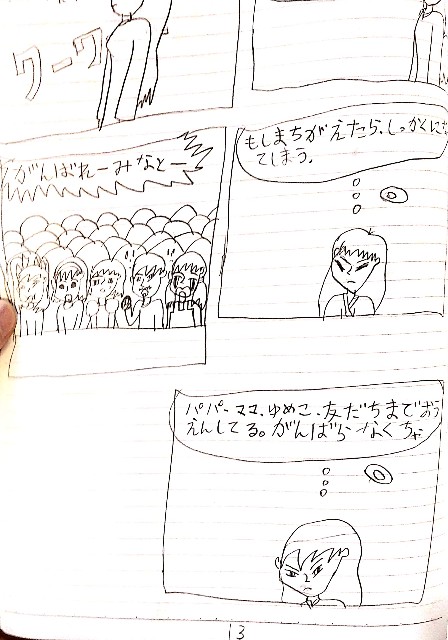 ワーワ
もしまちがえたら、しっかくに
てしまう。
がんばれーみなとー
パパ、ママ、ゆめこ、友だちまでおう
えんしてる。がんばらなくちゃ
13